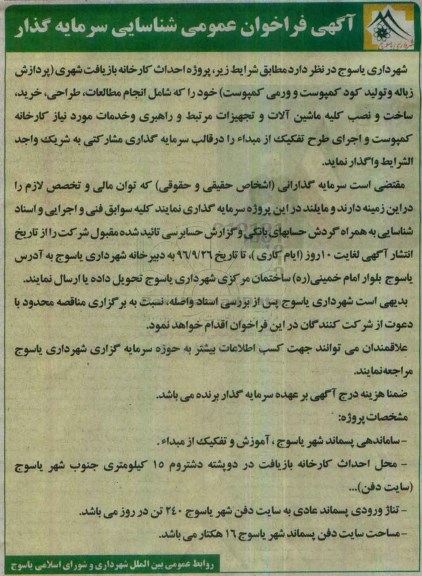 آگهی فراخوان عمومی شناسایی سرمایه گذار
شهرداری یاسوج در نظر دارد مطابق شرایط زیر، پروژه احداث کارخانه بازیافت شهری (پردازش
زباله و تولید کود کمپوست و ورمی کمپوست) خود را که شامل انجام مطالعات، طراحی، خرید،
ساخت و نصب کلیه ماشین آلات و تجهیزات مرتبط و راهبری وخدمات مورد نیاز کارخانه
کمپوست و اجرای طرح تفکیک از مبداء را درقالب سرمایه گذاری مشارکتی به شریک واجد
الشرایط واگذار نماید.
مقتضی است سرمایه گذارانی (اشخاص حقیقی و حقوقی) که توان مالی و تخصص لازم را
دراین زمینه دارند و مایلند در این پروژه سرمایه گذاری نمایند کلیه سوابق فنی و اجرایی و اسناد
شناسایی به همراه گردش حسابهای بانکی و گزارش حسابرسی تائید شده مقبول شرکت را از تاریخ
انتشار آگهی لغایت ۱۰روز (ایام کاری )، تا تاریخ ۹۶/۹/۲۶ به دبیرخانه شهرداری یاسوج به آدرس
یاسوج بلوار امام خمینی(ره) ساختمان مرکزی شهرداری یاسوج تحویل داده یا ارسال نمایند.
بدیهی است شهرداری یاسوج پس از بررسی اسناد واصله، نسبت به برگزاری مناقصه محدود با
دعوت از شرکت کنندگان در این فراخوان اقدام خواهد نمود.
علاقمندان می توانند جهت کسب اطلاعات بیشتر به حوزه سرمایه گزاری شهرداری یاسوج
مراجعه نمایند.
ضمنا هزینه درج آگهی بر عهده سرمایه گذار برنده می باشد.
مشخصات پروژه:
- ساماندهی پسماند شهر یاسوج ، آموزش و تفکیک از مبداء .
- محل احداث کارخانه بازیافت در دوپشته دشتروم ۱۵ کیلومتری جنوب شهر یاسوج
(سایت دفن)...
- تناژ ورودی پسماند عادی به سایت دفن شهر یاسوج ۲۴۰ تن در روز می باشد.
- مساحت سایت دفن پسماند شهر یاسوج ۱۶ هکتار می باشد.
روابط عمومی بین الملل شهرداری و شورای اسلامی یاسوج